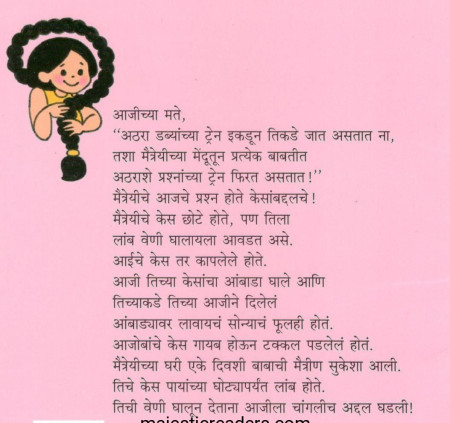 आजीच्या मते,
“अठरा डब्यांच्या ट्रेन इकडून तिकडे जात असतात ना,
तशा मैत्रेयीच्या मेंदूतून प्रत्येक बाबतीत
अठराशे प्रश्नांच्या ट्रेन फिरत असतात!”
मैत्रेयीचे आजचे प्रश्न होते केसांबद्दलचे!
मैत्रेयीचे केस छोटे होते, पण तिला
लांब वेणी घालायला आवडत असे.
आईचे केस तर कापलेले होते.
आजी तिच्या केसांचा आंबाडा घाले आणि
तिच्याकडे तिच्या आजीने दिलेलं
आंबाड्यावर लावायचं सोन्याचं फूलही होतं.
आजोबांचे केस गायब होऊन टक्कल पडलेलं होतं.
मैत्रेयीच्या घरी एके दिवशी बाबाची मैत्रीण सुकेशा आली.
तिचे केस पायांच्या घोट्यापर्यंत लांब होते.
तिची वेणी घालून देताना आजीला चांगलीच अद्दल घडली!
majesticreaders.com